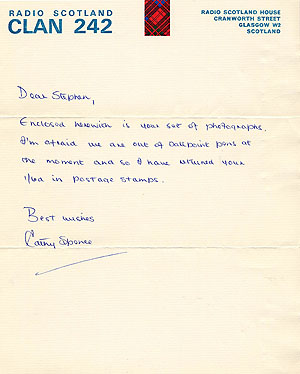 RADIO SCOTLAND
CLAN 242
RADIO SCOTLAND HOUSE
CRANWORTH STREET
GLASGOW W2
SCOTLAND
Dear Stephen,
Enclosed herewith is your set of photographs.
I'm afraid we are out of ballpoint pens at
the moment and so I have returned your
1/6d in postage stamps.
Best wishes
Cathy Spence